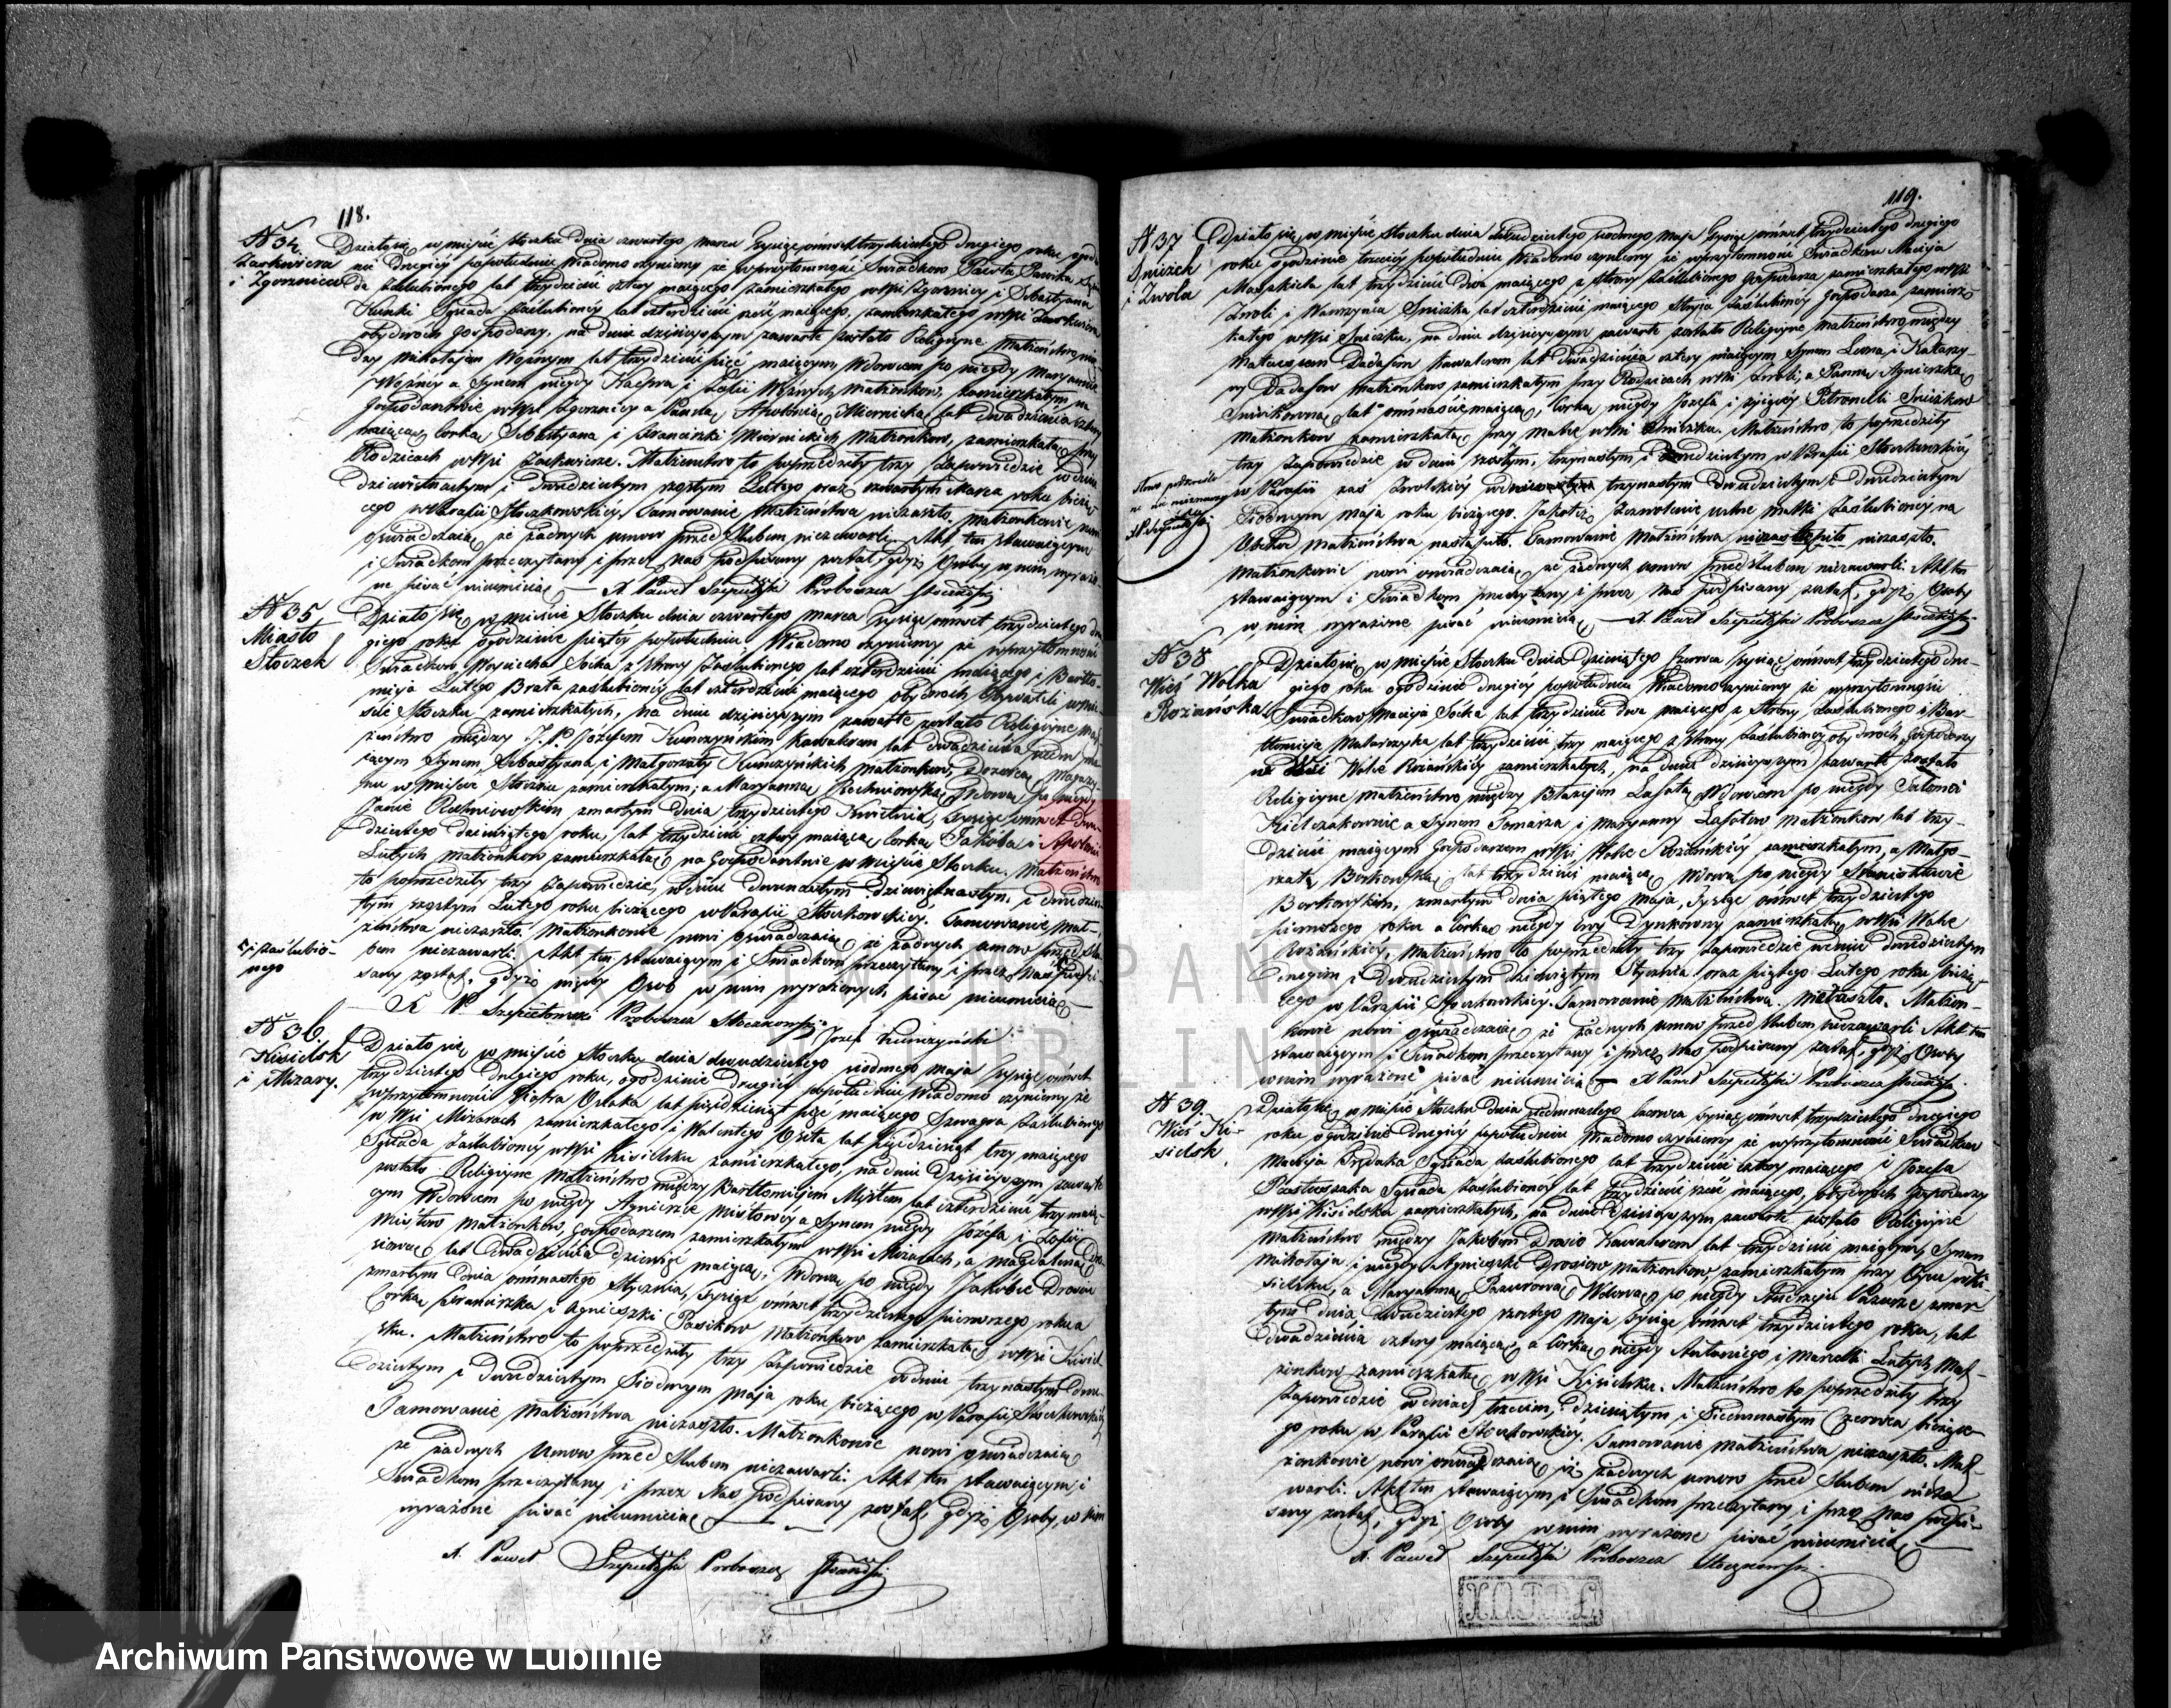 118.
N 34.
Jarkwicza
i Zgorznica
Działo się w mieście Stoczku dnia czwartego marca tysiąc ośmset trzydziestego drugiego roku o godzi-
nie drugiey popołudniu Wiadomo czynimy że w przytomności Świadkow Pawła
zaślubionego lat trzydzieści cztery maiącego zamieszkałego w Wsi Zgorznicy i Sebastyana
Kunki Sąsiada Zaślubioney lat czterdzieści sześć maiącego, zamieszkałego w Wsi
obydwoch Gospodarzy, na dniu dzisieyszym zawarte zostało Religiyne Małżeństwo mię-
dzy Mikołajem Woźnym lat trzydzieści pięć maiącym, Wdowcem po niegdy Maryannie
Woźney a Synem niegdy Kacpra i Zofii Woźnych Małżonkow, zamieszkałym na
Gospodarstwie w Wsi Zgorznicy a Panną Apolonią Miernicką lat dwadzieścia cztery
maiącą Corką Sebastyana i Franciszki Miernickich Małżonkow, zamieszkałą przy
Rodzicach w Wsi. Małżeństwo to poprzedziły trzy Zapowiedzie w dniu
dziewiętnastym i dwudziestym szostym Lutego oraz czwartym Marca roku bieżą-
cego w Parafii Stoczkowskiey, Tamowanie Małżeństwa niezaszło. Małżonkowie nowi
oświadczaią że żadnych umow przed Slubem niezawarli. Akt ten stawaiącym
i Świadkom przeczytany i przez Nas podpisany został, gdyż Osoby w nim wyrażo-
ne pisać nieumieią — X Paweł Szepietowski Proboszcz Stoczkowski
N 35
Miasto
Stoczek
Działo się w mieście Stoczku dnia czwartego marca tysiąc ośmset trzydziestego dru-
giego roku o godzinie piątey popołudniu. Wiadomo czynimy że w przytomności
Świadkow Woyciecha Soćka z strony Zaślubionego lat czterdzieści maiącego i Bartło-
mieja Lutego Brata zaślubioney lat czterdzieści maiącego obydwoch Obywateli w mie-
ście Stoczku zamieszkałych, na dniu dzisieyszym zawarte zostało Religiyne Mał-
żeństwo między J. P. Jozefem Kunczyńskim Kawalerem lat dwadzieścia siedm ma-
iącym Synem, Sebastyana i Małgorzaty Kunczyńskich małżonkow, Dozorcą Magazy-
nu w mieście Stoczku zamieszkałym; a Maryanną Rechniowską Wdową po niegdy
Janie Rechniowskim zmarłym dnia trzydziestego Kwietnia, tysiąc ośmset dwu-
dziestego dziewiątego roku, lat trzydzieści cztery maiącą Corką Jakoba i
Lutych małżonkow zamieszkałą na Gospodarstwie w mieście Stoczku. Małżeństwo
to poprzedziły trzy Zapowiedzie, w dniu dwunastym dziewiętnastym, i dwudzie-
stym szostym Lutego roku bieżącego w Parafii Stoczkowskiey. Tamowanie Mał-
żeństwa niezaszło. Małżonkowie nowi oświadczaią że żadnych umow przed Slu-
bem niezawarli. Akt ten stawaiącym i Świadkom przeczytany i przez Nas podpi-
sany został, gdyż między Osob w nim wyrażonych pisać nieumieią
i zaślubio-
nego
X P. Szepietowski Proboszcz Stoczkowski Jozef Kunczyński
N 36.
Kisielsk
i Mizary.
Działo się w mieście Stoczku dnia dwudziestego siodmego maja tysiąc ośmset
trzydziestego drugiego roku, o godzinie drugiey popołudniu Wiadomo czynimy że
w przytomności Piotra Ośłaka lat pięćdziesiąt pięć maiącego Szwagra Zaślubionego
w Wsi Mizarach zamieszkałego i Walentego Osita lat pięćdziesiąt trzy maiącego
Sąsiada Zaślubioney w Wsi Kisielsku zamieszkałego, na dniu Dzisieyszym zawarte
zostało Religiyne Małżeństwo między Bartłomiejem Mistem lat czterdzieści trzy maią-
cym Wdowcem po niegdy Agnieszce Mistowey a Synem niegdy Jozefa i Zofii
Mistow małżonkow, Gospodarzem zamieszkałym w Wsi Mizarach, a Magdaleną Dro-
siową lat dwadzieścia dziewięć maiącą, Wdową po niegdy Jakobie Drosiu
zmarłym dnia ośmnastego Stycznia, tysiąc ośmset trzydziestego pierwszego roku a
Corką Franciszka i Agnieszki Pasikow Małżonkow zamieszkałą w Wsi Kisiel-
sku. Małżeństwo to poprzedziły trzy Zapowiedzie w dniu trzynastym dwu-
dziestym i Dwudziestym Siodmym maja roku bieżącego w Parafii Stoczkowskiey
Tamowanie małżeństwa niezaszło. Małżonkowie nowi oświadczaią
że żadnych Umow przed Slubem niezawarli. Akt ten stawaiącym i
Świadkom przeczytany i przez Nas podpisany został, gdyż Osoby w nim
wyrażone pisać nieumieią
X. Paweł Szepietowski Proboszcz Stoczkowski
119.
N 37
Śniżek
i Zwola
Działo się w mieście Stoczku dnia dwudziestego siodmego Maja tysiąc ośmset trzydziestego drugiego
roku o godzinie trzeciey popołudniu Wiadomo czynimy że w przytomności Świadkow Macieja
lat trzydzieści dwa maiącego z strony Zaślubionego Gospodarza zamieszkałego w Wsi
Zwoli i Wawrzyńca Śniżka lat czterdzieści maiącego Stryja Zaślubioney Gospodarza zamiesz-
kałego w Wsi Śniżku, na dniu dzisieyszym zawarte zostało Religiyne małżeństwo między
Mateuszem Dadasem kawalerem lat dwadzieścia cztery maiącym Synem i Katarzy-
ny Dadasow małżonkow zamieszkałym przy Rodzicach w Wsi Zwoli, a Panną Agnieszką
lat ośmnaście maiącą, Corką niegdy Jozefa i żyiącey Petronelli Śniżkow
małżonkow zamieszkałą przy matce w Wsi Śniżku. Małżeństwo to poprzedziły
trzy Zapowiedzie w dniu szostym, trzynastym i dwudziestym w Parafii Stoczkowskiey,
w Parafii zaś Zwolskiey trzynastym Dwudziestym i dwudziestym
Siodmym maja roku bieżącego. Jakoteż Zezwolenie ustne matki Zaślubioney na
Obchod małżeństwa nastąpiło. Tamowanie Małżeństwa niezaszło.
Małżonkowie nowi oświadczaią że żadnych umow przed Slubem niezawarli. Akt ten
stawaiącym i Świadkom przeczytany i przez Nas podpisany został, gdyż Osoby
w nim wyrażone pisać nieumieią — X. Paweł Szepietowski Proboszcz Stoczkowski
N 38
Wieś Wolka
Rożanska
Działo się w mieście Stoczku Dnia Dziesiątego Czerwca tysiąc ośmset trzydziestego dru-
giego roku o godzinie drugiey popołudniu Wiadomo czynimy że w przytomności
Świadkow Macieja Soćka lat trzydzieści dwa maiącego z Strony Zaślubionego i Bar-
tłomieja Malarczyka lat trzydzieści trzy maiącego z strony Zaślubioney obydwoch Gospodarzy
na Wsi Wolce Rożańskiey zamieszkałych, na dniu dzisieyszym zawarte zostało
Religiyne małżeństwo między Błażejem Lasotą Wdowcem po niegdy Salomei
Kielczakownie a Synem Tomasza i Maryanny Lasotow małżonkow lat trzy-
dzieści maiącym Gospodarzem w Wsi Wolce Rożańskiey zamieszkałym, a Małgo-
rzatą Borkowską lat trzydzieści maiącą Wdową po niegdy Stanisławie
Borkowskim, zmarłym dnia piątego maja, tysiąc ośmset trzydziestego
pierwszego roku a Corką niegdy Ewy Dynkowny zamieszkałą w Wsi Wolce
Rożańskiey, Małżeństwo to poprzedziły trzy Zapowiedzie w dniu dwudziestym
drugim i Dwudziestym dziewiątym Stycznia oraz piątego Lutego roku bieżą-
cego w Parafii Stoczkowskiey. Tamowanie małżeństwa niezaszło. Małżon-
kowie nowi oświadczaią że żadnych umow przed Slubem niezawarli Akt ten
stawaiącym i Świadkom przeczytany i przez Nas podpisany został, gdyż Osoby
w nim wyrażone pisać nieumieią — X Paweł Szepietowski Proboszcz Stoczkowski
N 39.
Wieś Ki-
sielsk
Działo się w mieście Stoczku Dnia siedmnastego Czerwca tysiąc ośmset trzydziestego drugiego
roku o godzinie drugiey popołudniu Wiadomo czynimy że w przytomności Świadkow
Macieja Sąsiada Zaślubionego lat trzydzieści cztery maiącego i Jozefa
Pastuszaka Sąsiada Zaślubioney lat trzydzieści sześć maiącego, obydwoch Gospodarzy
w Wsi Kisielsku zamieszkałych, na dniu dzisieyszym zawarte zostało Religiyne
małżeństwo między Jakobem Drosio Kawalerem lat trzydzieści maiącym, Synem
Mikołaja i niegdy Agnieszki Drosiow Małżonkow, zamieszkałym przy Oycu w Ki-
sielsku, a Maryanną Pazurową Wdową po niegdy Andrzeju Pazurze zmar-
łym dnia dwudziestego szostego Maja tysiąc ośmset trzydziestego roku, lat
dwadzieścia cztery maiącą a Corką niegdy Antoniego i Marcelli Lutych Mał-
żonkow zamieszkałą w Wsi Kisielsku. Małżeństwo to poprzedziły trzy
Zapowiedzie w dniach trzecim, dziesiątym i Siedmnastym Czerwca bieżące-
go roku w Parafii Stoczkowskiey. Tamowanie małżeństwa niezaszło. Mał-
żonkowie nowi oświadczaią iż żadnych umow przed Slubem nieza-
warli. Akt ten stawaiącym i Świadkom przeczytany i przez Nas podpi-
sany został, gdyż Osoby w nim wyrażone pisać nieumieią
X. Paweł Szepietowski Proboszcz Stoczkowski
ARCHIWUM PAŃSTWOWE
W LUBLINIE
Archiwum Państwowe w Lublinie